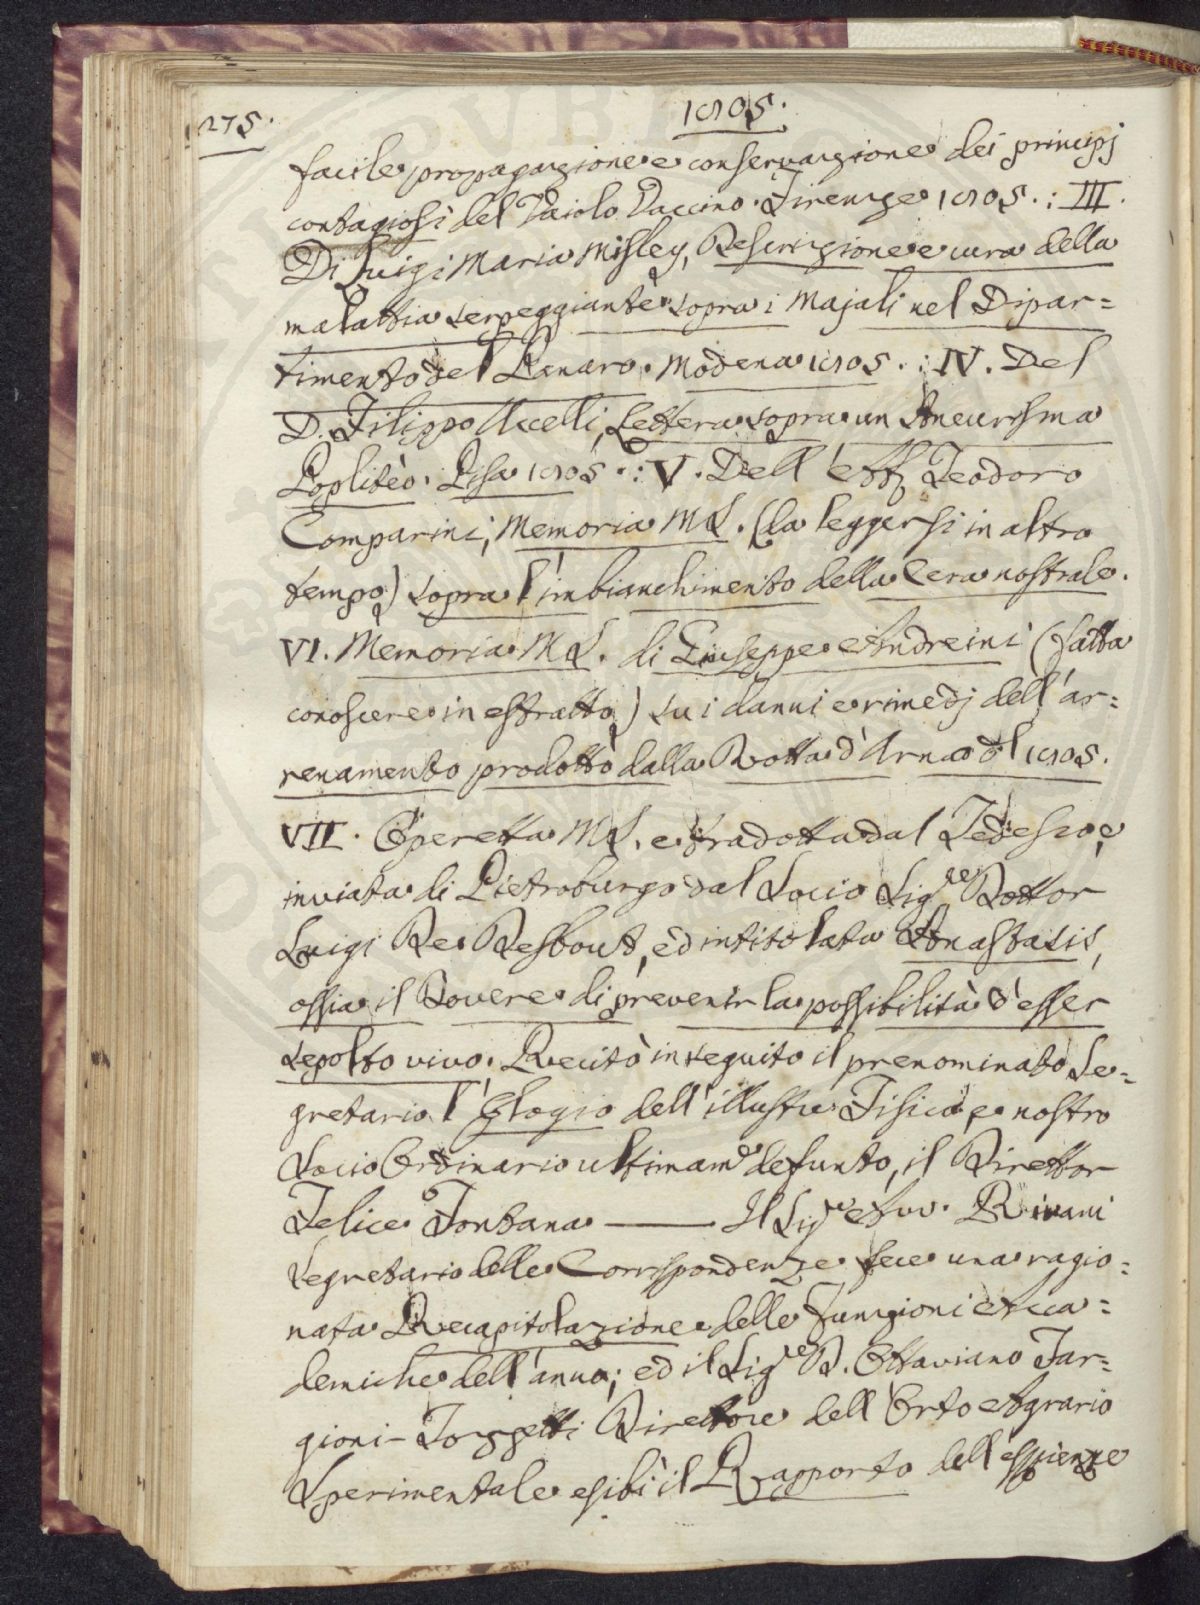 275.
1805.
facile propagazione e conservazione dei principj
contagiosi del Vaiolo Vaccino. Firenze 1805. : III.
Di Luigi Maria Misley, Descrizione e cura della
malattia serpeggiante sopra i Majali nel Dipar=
timento del Panaro. Modena 1805. : IV. Del
D. Filippo Uccelli, Lettera sopra un Aneurisma
Popliteo. Pisa 1805. : V. Dell' Teodoro
Comparini, Memoria MS. (da leggersi in altro
tempo) sopra l'imbianchimento della Cera nostrale.
VI. Memoria MS. di Giuseppe Andreini (fatta
conoscere in estratto) su i danni e rimedj dell'ar=
renamento prodotto dalla Rotta d'Arno dl 1805.
VII. Operetta MS. e tradotta dal Tedesco, e
inviata di Pietroburgo dal Socio Sig.re Dottor
Luigi De Desbout, ed intitolata Anastasis,
ossia il Dovere di prevenir la possibilità d'esser
sepolto vivo. Recitò in seguito il prenominato Se=
gretario l'Elogio dell'illustre Fisico, e nostro
Socio Ordinario ultimam.e defunto, il Direttor
Felice Fontana —— Il Sig.re Avv. Rivani
Segretario delle Corrispondenze fece una ragio=
nata Recapitolazione delle funzioni Acca=
demiche dell'anno; ed il Sig.re D. Ottaviano Tar=
gioni-Tozzetti Direttore dell'Orto Agrario
Sperimentale esibì il Rapporto dell'esperienze